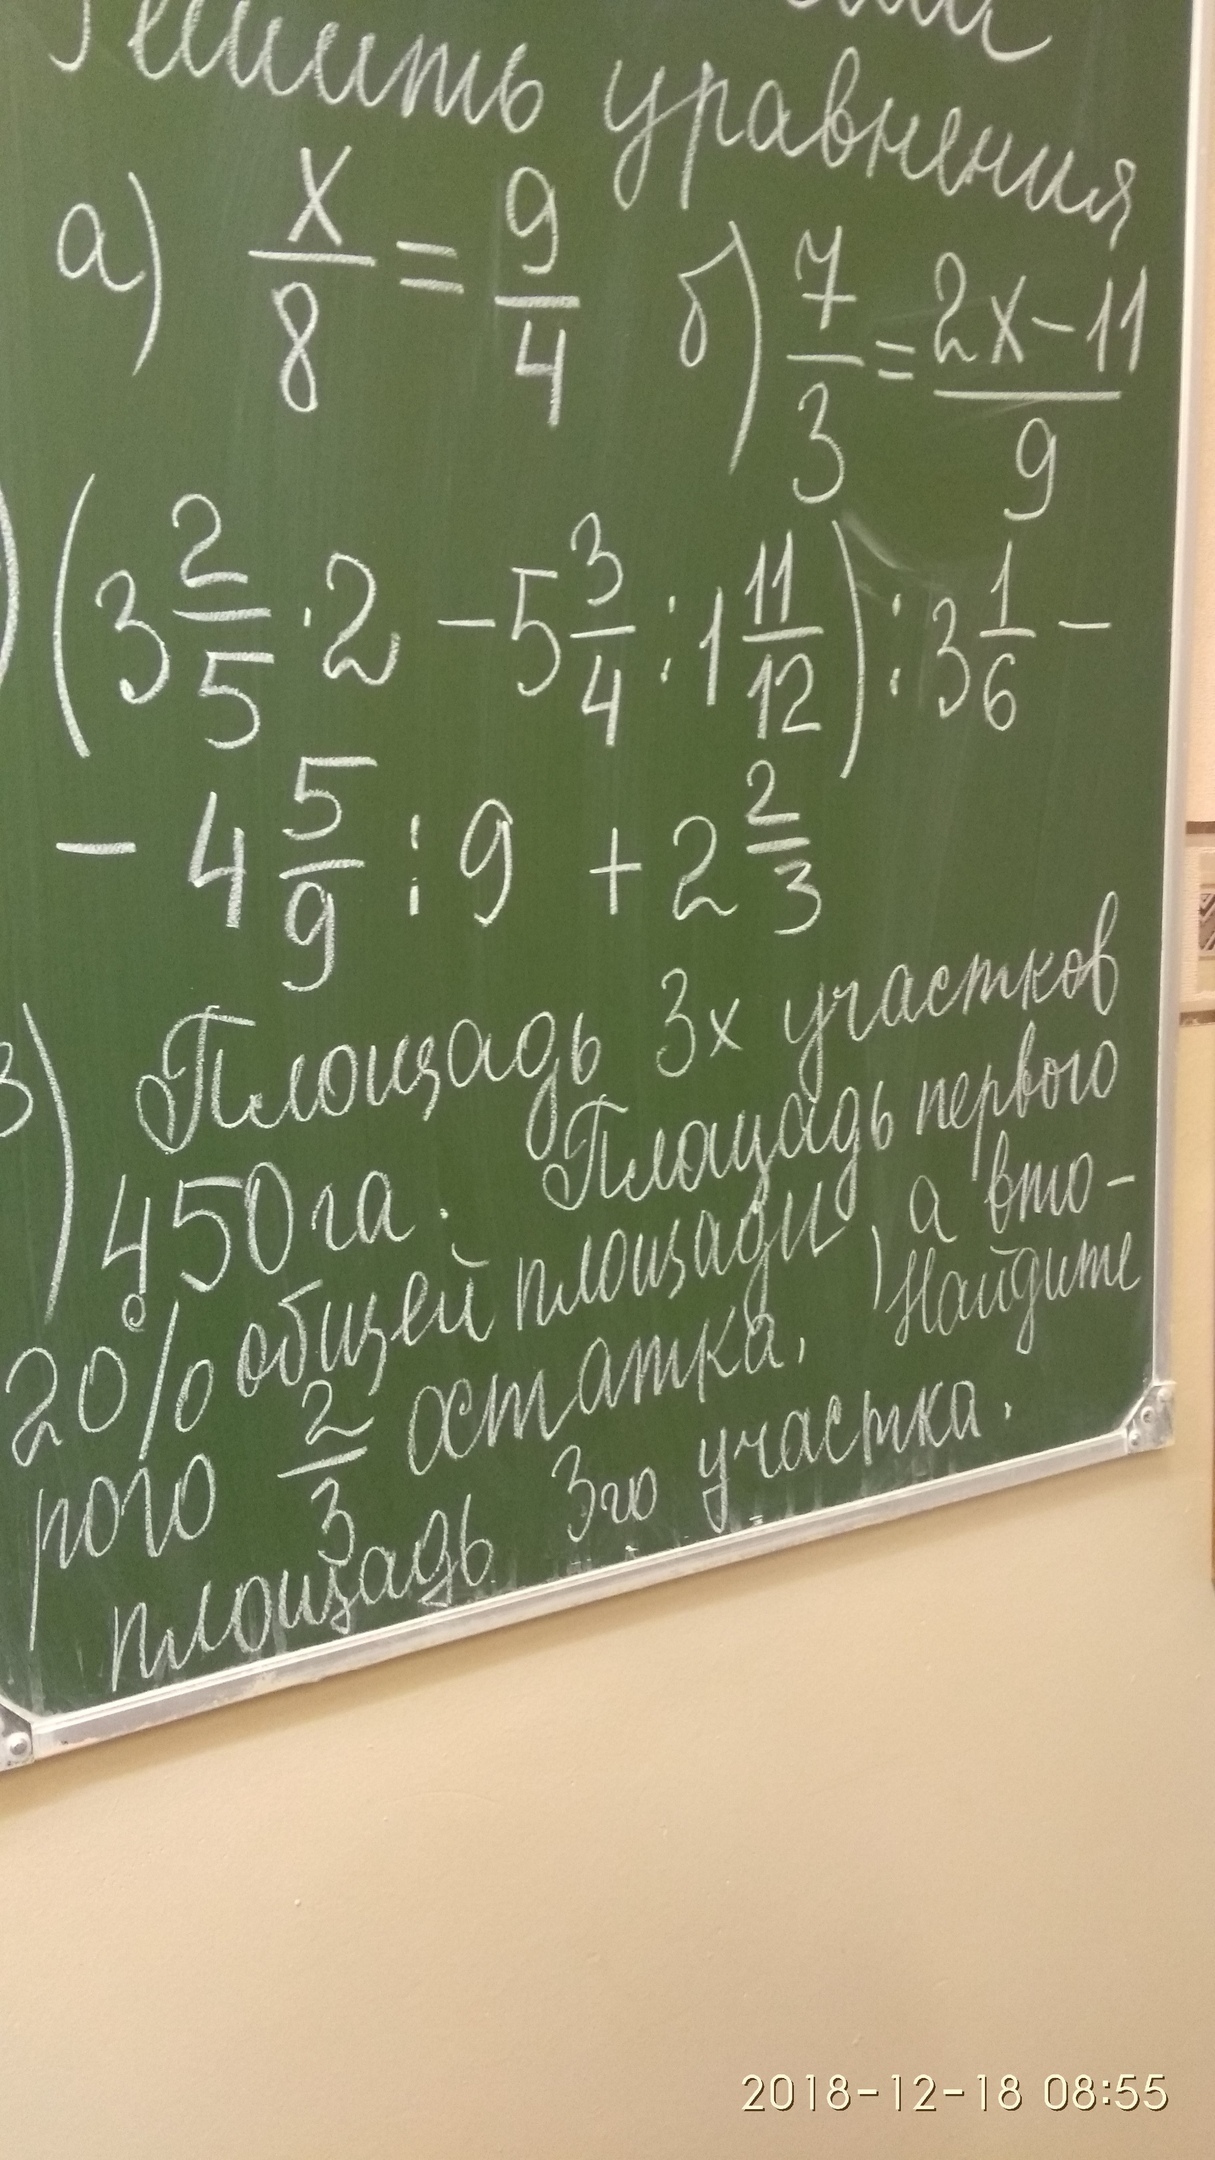 Решить уравнения
а) x/8 = 9/4 б) 7/3 = (2x-11)/9
(3 2/5 · 2 - 5 3/4 : 1 11/12) : 3 1/6 -
- 4 5/9 : 9 + 2 2/3
3) Площадь 3х участков
450га. Площадь первого
20% общей площади, а вто-
рого 2/3 остатка. Найдите
площадь 3го участка.
2018-12-18 08:55